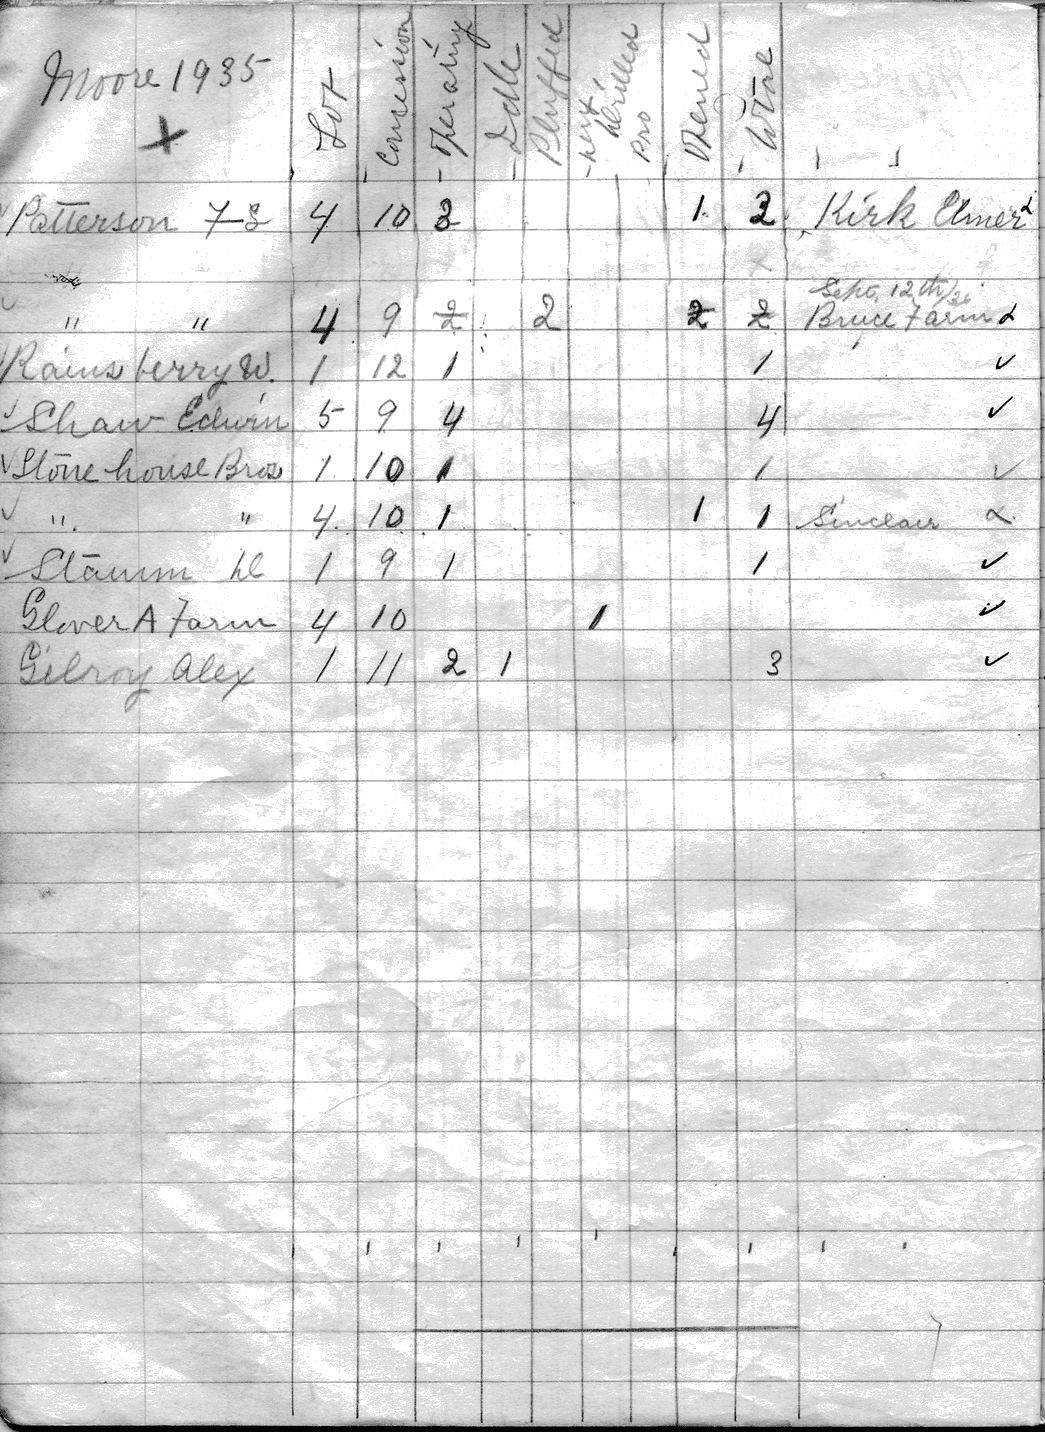 Moore 1935
+
Lot Concession Operating Idle Pluffed Next Drilled Pro Total
Patterson 7-S 4 10 3 1 3 Kirk Elmer
Sept. 12th/36
" " 4 9 2 2 2 2 Bruce Farm
✓ Rainsberry W. 1 12 1 1 ✓
✓ Shaw Edwin 5 9 4 4 ✓
✓ Stonehouse Bros 1 10 1 1 ✓
✓ " " 4 10 1 1 1 Sinclair
✓ Stamm 1 9 1 1 ✓
Glover A Farm 4 10 1 ✓
Gilroy Alex 1 11 2 1 3 ✓